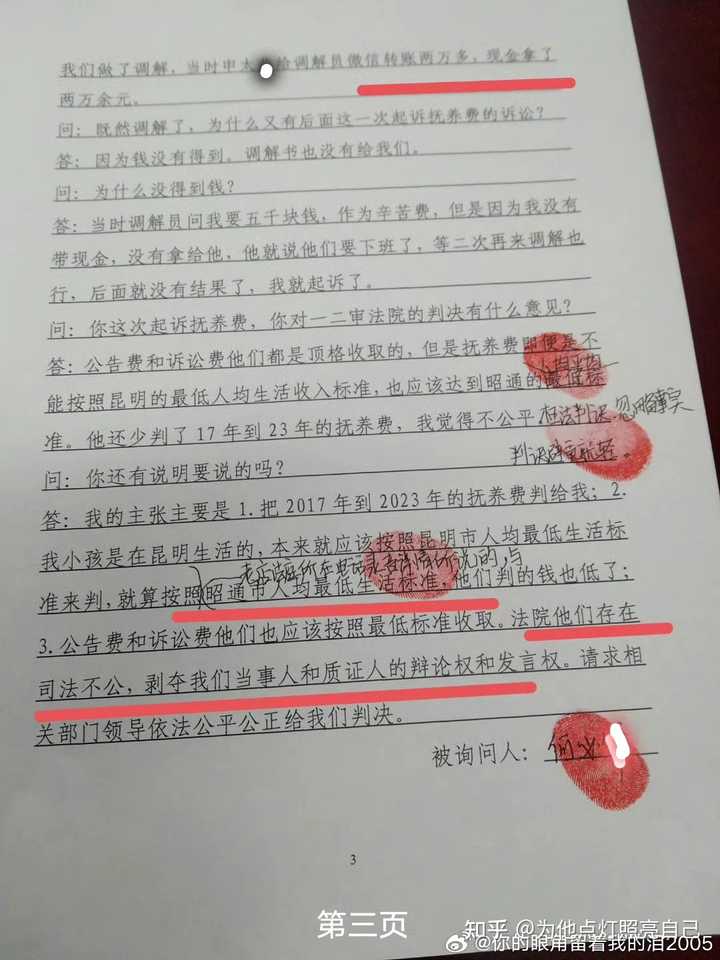 我们做了调解，当时申太 给调解员微信转账两万多，现金拿了
两万余元。
问：既然调解了，为什么又有后面这一次起诉抚养费的诉讼？
答：因为钱没有得到。调解书也没有给我们。
问：为什么没得到钱？
答：当时调解员问我要五千块钱，作为辛苦费，但是因为我没有
带现金，没有拿给他，他就说他们要下班了，等二次再来调解也
行，后面就没有结果了，我就起诉了。
问：你这次起诉抚养费，你对一二审法院的判决有什么意见？
答：公告费和诉讼费他们都是顶格收取的，但是抚养费即使是不
能按照昆明的最低人均生活收入标准，也应该达到昭通的最低标
准。他还少判了 17 年到 23 年的抚养费，我觉得不公平
忽略事实
问：你还有说明要说的吗？
答：我的主张主要是 1.把 2017 年到 2023 年的抚养费判给我；2.
我小孩是在昆明生活的，本来就应该按照昆明市人均最低生活标
准来判，就算按照昭通市人均最低生活标准，他们判的钱也低了；
3.公告费和诉讼费他们也应该按照最低标准收取。法院他们存在
司法不公，剥夺我们当事人和质证人的辩论权和发言权。请求相
关部门领导依法公平公正给我们判决。
被询问人：何
3
第三页
知乎 @为他点灯照亮自己
@你的眼角留着我的泪2005